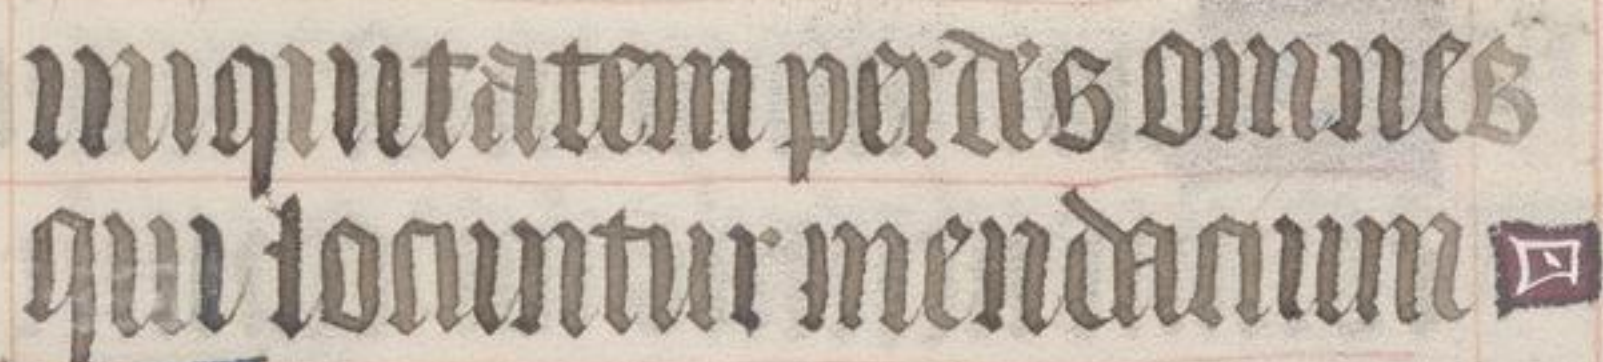 iniquitatem perdes omnes
qui locuntur mendacium